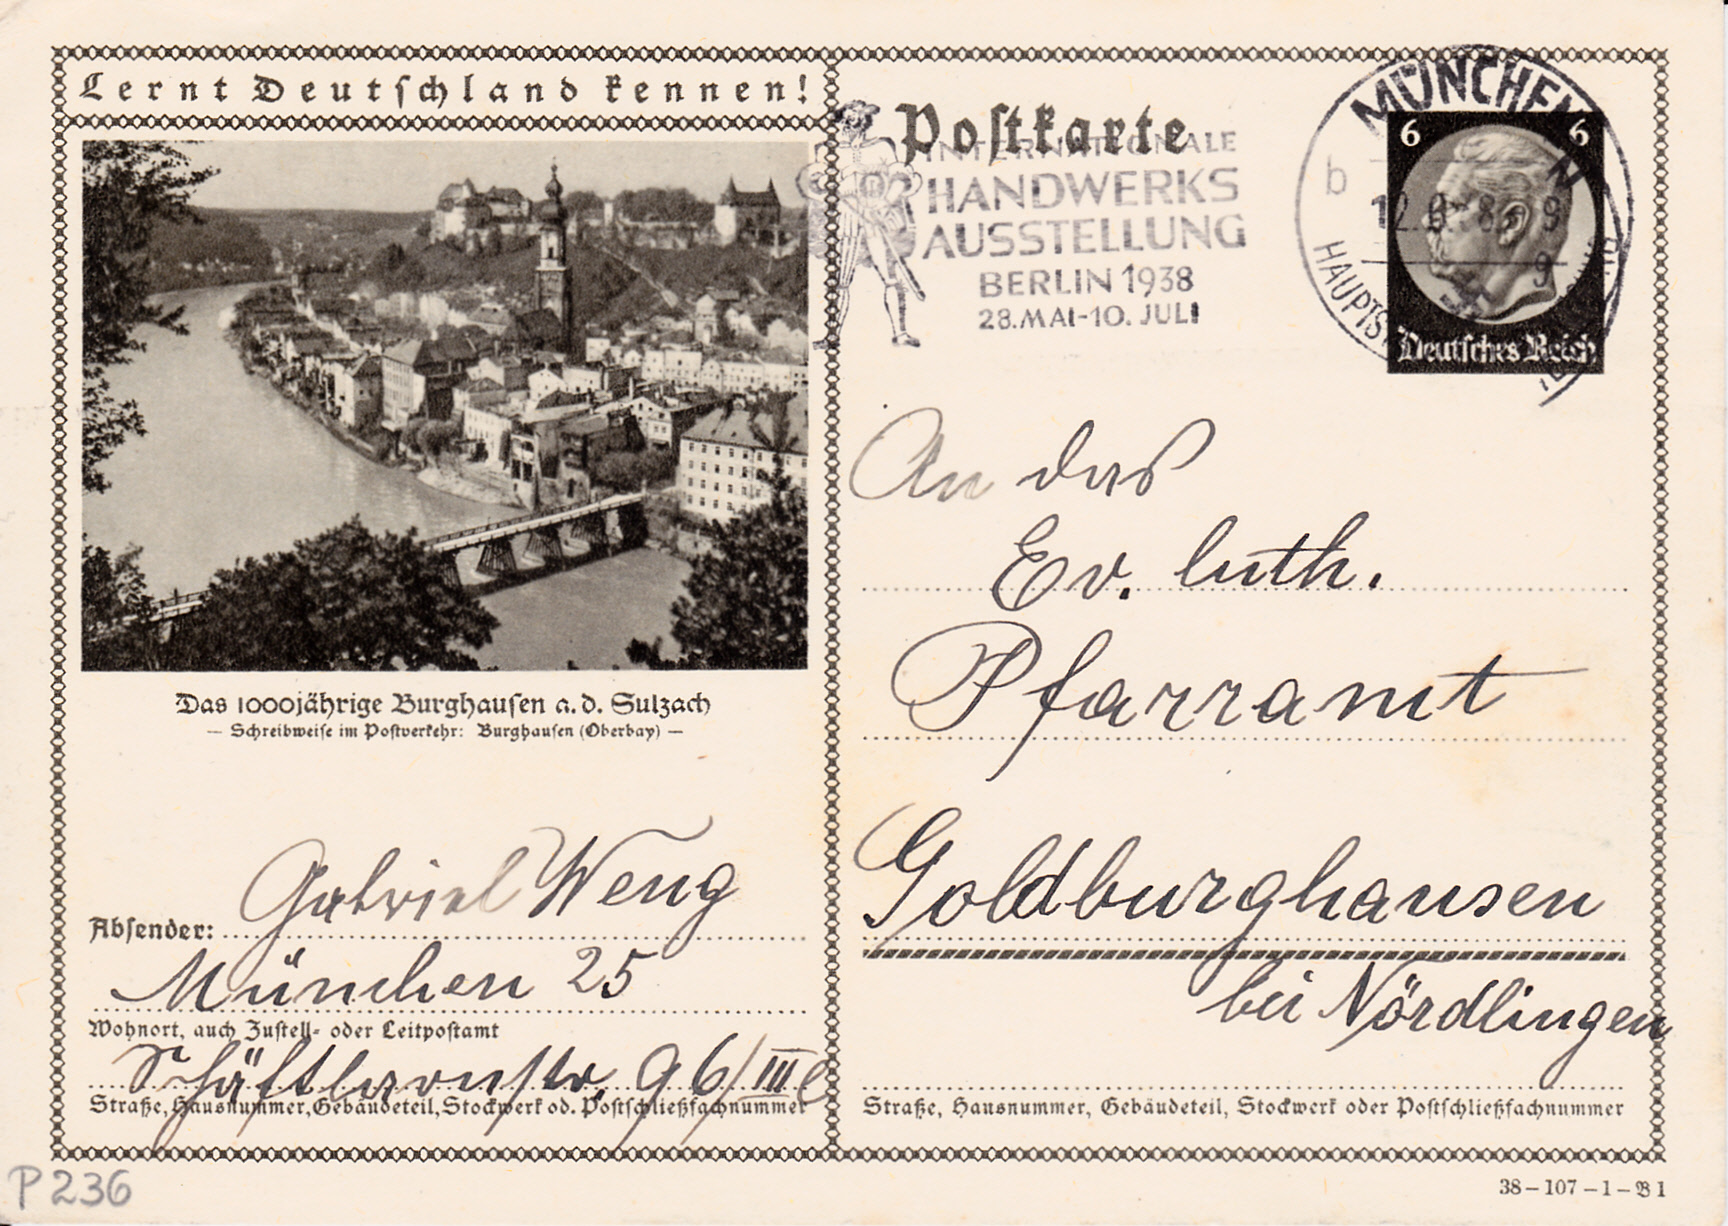 Lernt Deutschland kennen!
Das 1000jährige Burghausen a. d. Sulzach
— Schreibweise im Postverkehr: Burghausen (Oberbay) —
Absender: Gabriel Weng
München 25
Wohnort, auch Zustell- oder Leitpostamt
Schäftlarnstr. 96/III
Straße, Hausnummer, Gebäudeteil, Stockwerk od. Postschließfachnummer
P 236
Postkarte
INTERNATIONALE
HANDWERKS
AUSSTELLUNG
BERLIN 1938
28. MAI-10. JULI
MÜNCHEN
b
6 6
Deutsches Reich
An das
Ev. luth.
Pfarramt
Goldburghausen
bei Nördlingen
Straße, Hausnummer, Gebäudeteil, Stockwerk oder Postschließfachnummer
38 – 107 – 1 – B 1